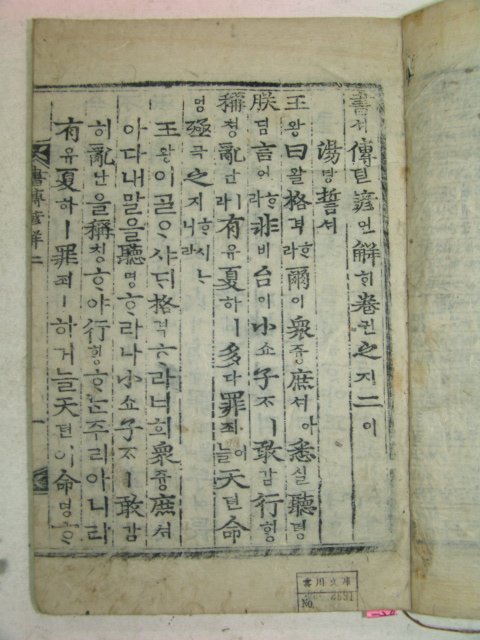 書셔傳뎐諺언解ᄒᆡ卷권之지二이
湯탕誓셔
王왕曰왈格격ᄒᆞ라爾이衆즁庶셔아悉실聽텽
朕딤言언ᄒᆞ라非비台이小쇼子ᄌᆞㅣ敢감行ᄒᆡᆼ
稱칭亂난이라有유夏하ㅣ多다罪죄어ᄂᆞᆯ天텬命
명殛극之지ᄒᆞ시ᄂᆞ니라
王왕이ᄀᆞᆯᄋᆞ샤ᄃᆡ格격ᄒᆞ라너희衆즁庶셔
아다내말을聽텽ᄒᆞ라나小쇼子ᄌᆞㅣ敢감
히亂난을稱칭ᄒᆞ야行ᄒᆡᆼᄒᆞᄂᆞᆫ주리아니라
有유夏하ㅣ罪죄ㅣ하거늘天텬이命명ᄒᆞ
書傳諺解二
一